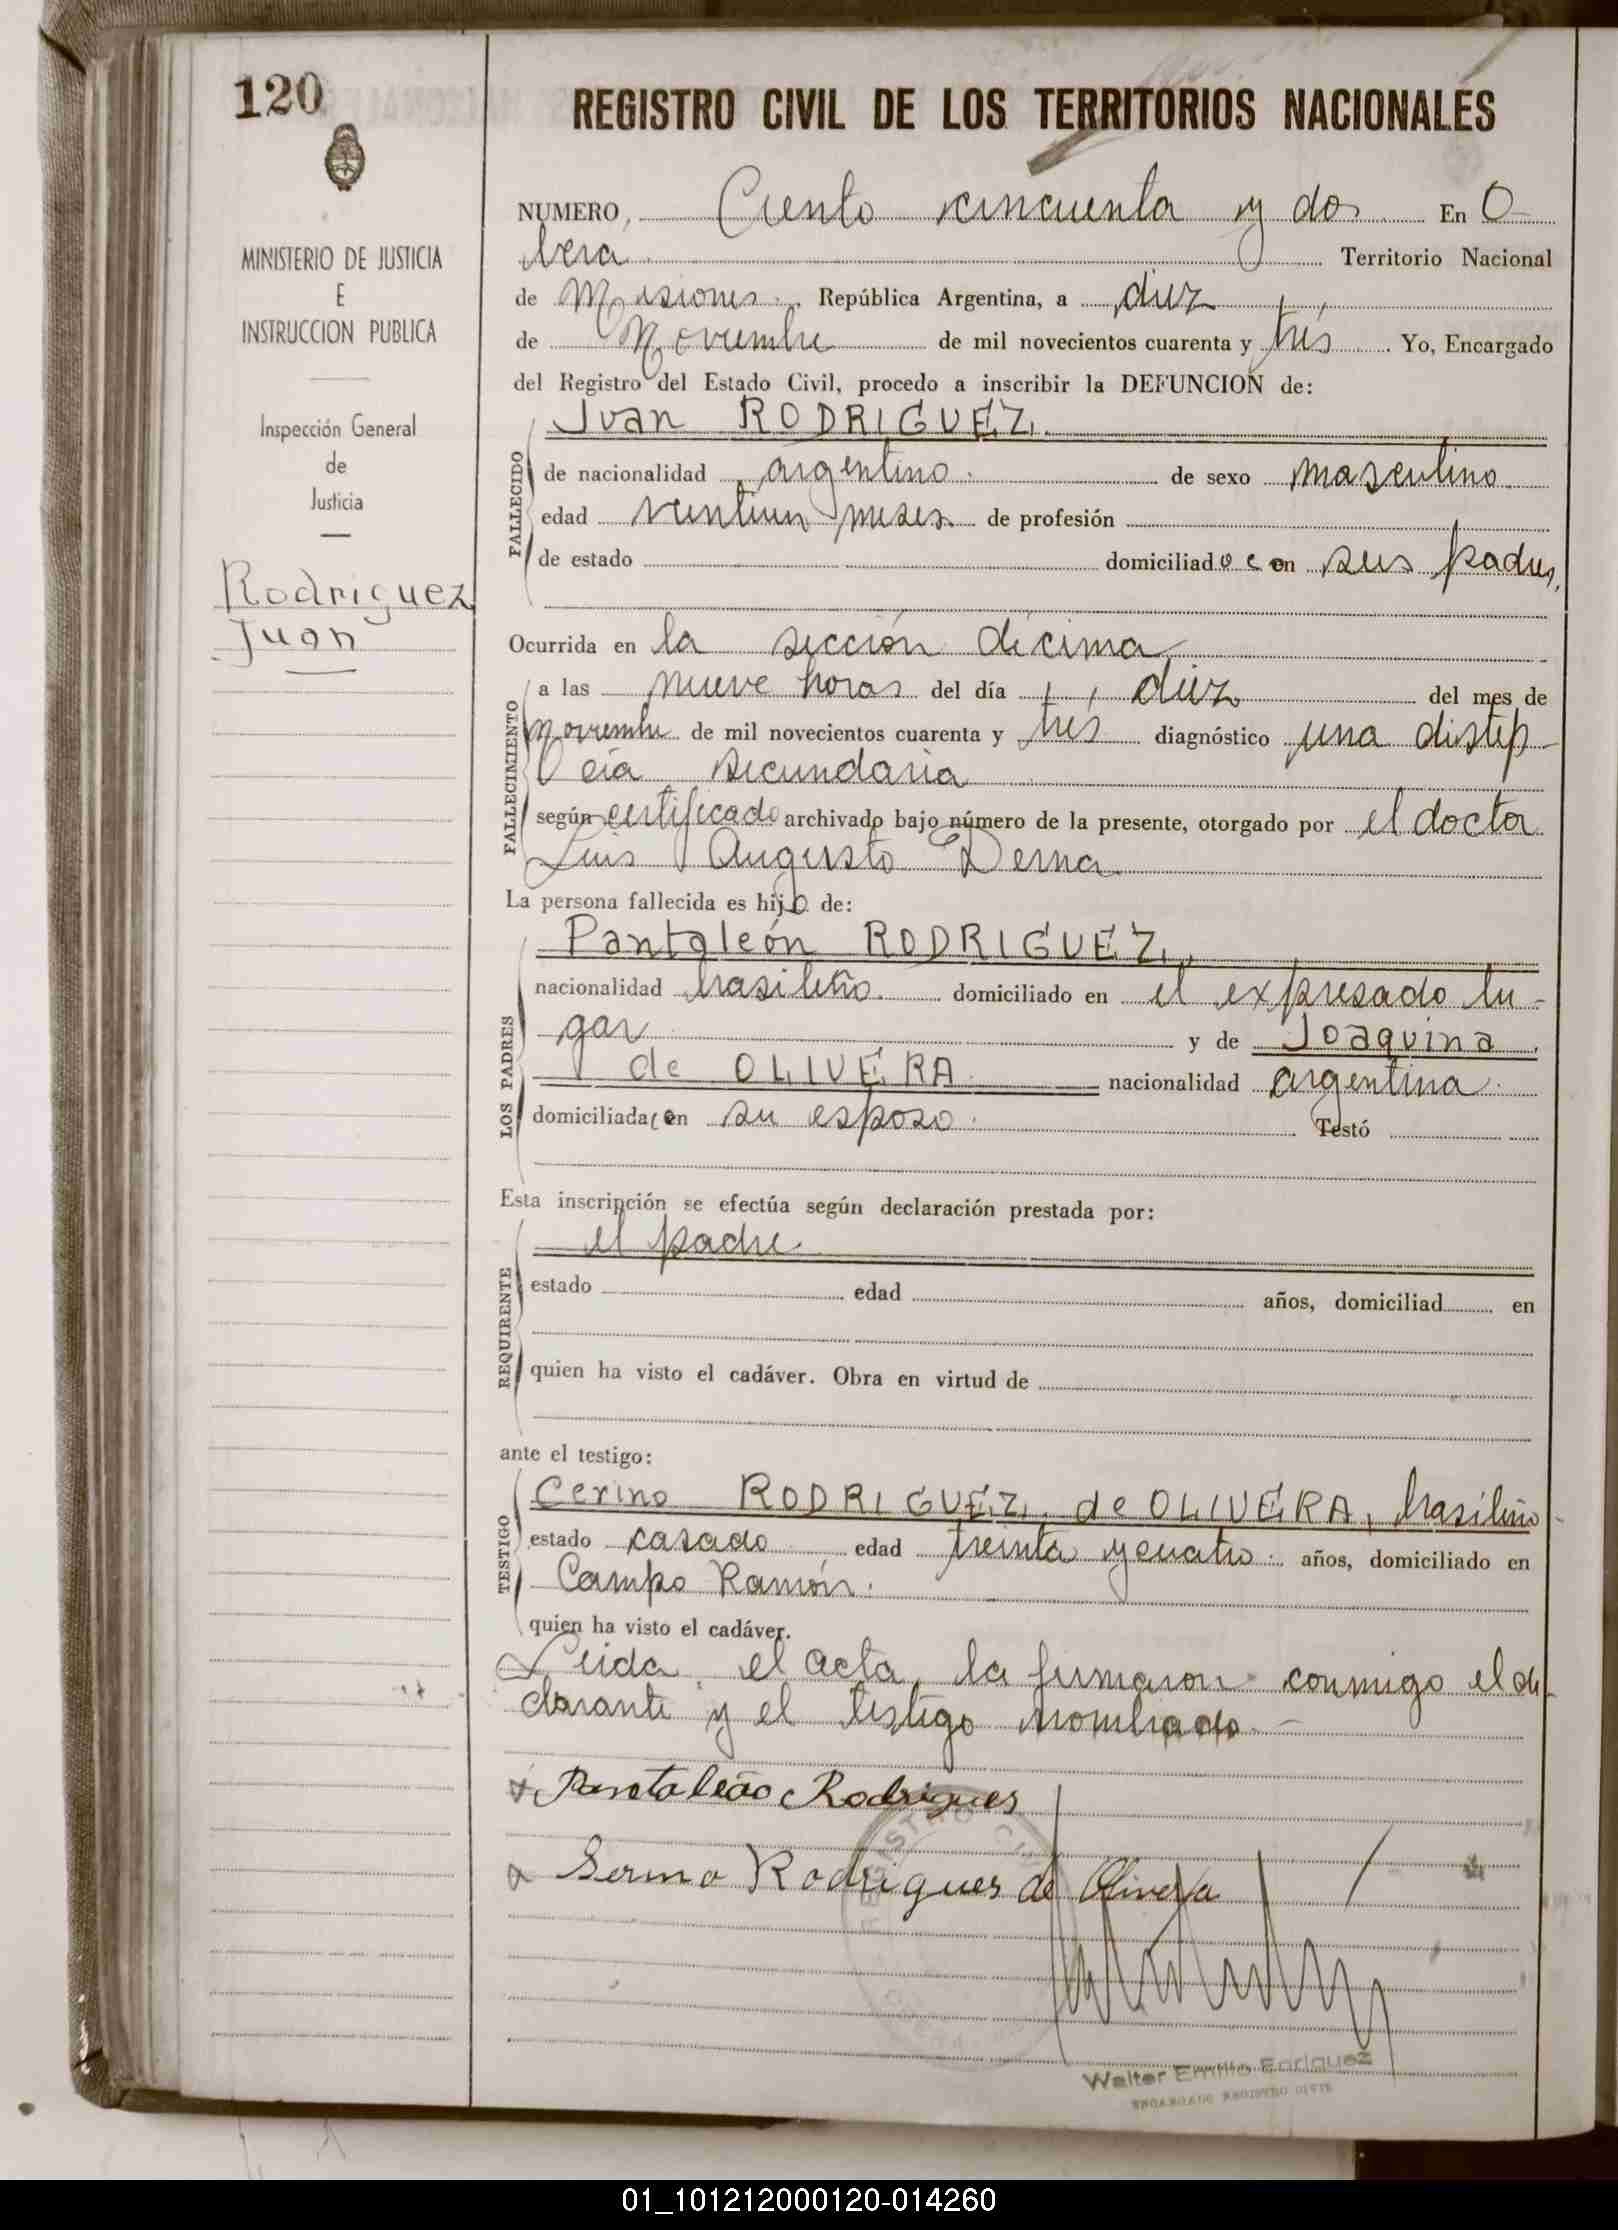 120
REGISTRO CIVIL DE LOS TERRITORIOS NACIONALES
MINISTERIO DE JUSTICIA
E
INSTRUCCION PUBLICA
Inspección General
de
Justicia
Rodriguez
Juan
NUMERO, Ciento cincuenta y dos En O-
bera Territorio Nacional
de Misiones República Argentina, a diez
de Noviembre de mil novecientos cuarenta y trés Yo, Encargado
del Registro del Estado Civil, procedo a inscribir la DEFUNCION de:
FALLECIDO
Juan RODRIGUEZ
de nacionalidad argentino. de sexo masculino
edad veintiun meses de profesión
de estado domiciliado c en sus padres,
Ocurrida en la sección décima
FALLECIMIENTO
a las nueve horas del día diez del mes de
noviembre de mil novecientos cuarenta y trés diagnóstico una distep-
cia secundaria
según certificado archivado bajo número de la presente, otorgado por el doctor
Luis Augusto Derna
La persona fallecida es hijo de:
LOS PADRES
Pantaleón RODRIGUEZ,
nacionalidad brasileño. domiciliado en el expresado lu-
gar y de Joaquina
de OLIVERA nacionalidad argentina.
domiciliada c en su esposo. Testó
Esta inscripción se efectúa según declaración prestada por:
REQUIRENTE
el padre
estado edad años, domiciliad en
quien ha visto el cadáver. Obra en virtud de
ante el testigo:
TESTIGO
Cerino RODRIGUEZ de OLIVERA, brasileño
estado casado edad treinta y cuatro años, domiciliado en
Campo Ramón.
quien ha visto el cadáver.
Leida el acta, la firmaron conmigo el de-
clarante y el testigo nombrado.-
x Pantaleão Rodrigues
x Serino Rodrigues de Olivera
REGISTRO CIVIL
Walter Emilio Enriquez
ENCARGADO REGISTRO CIVIL
01_101212000120-014260